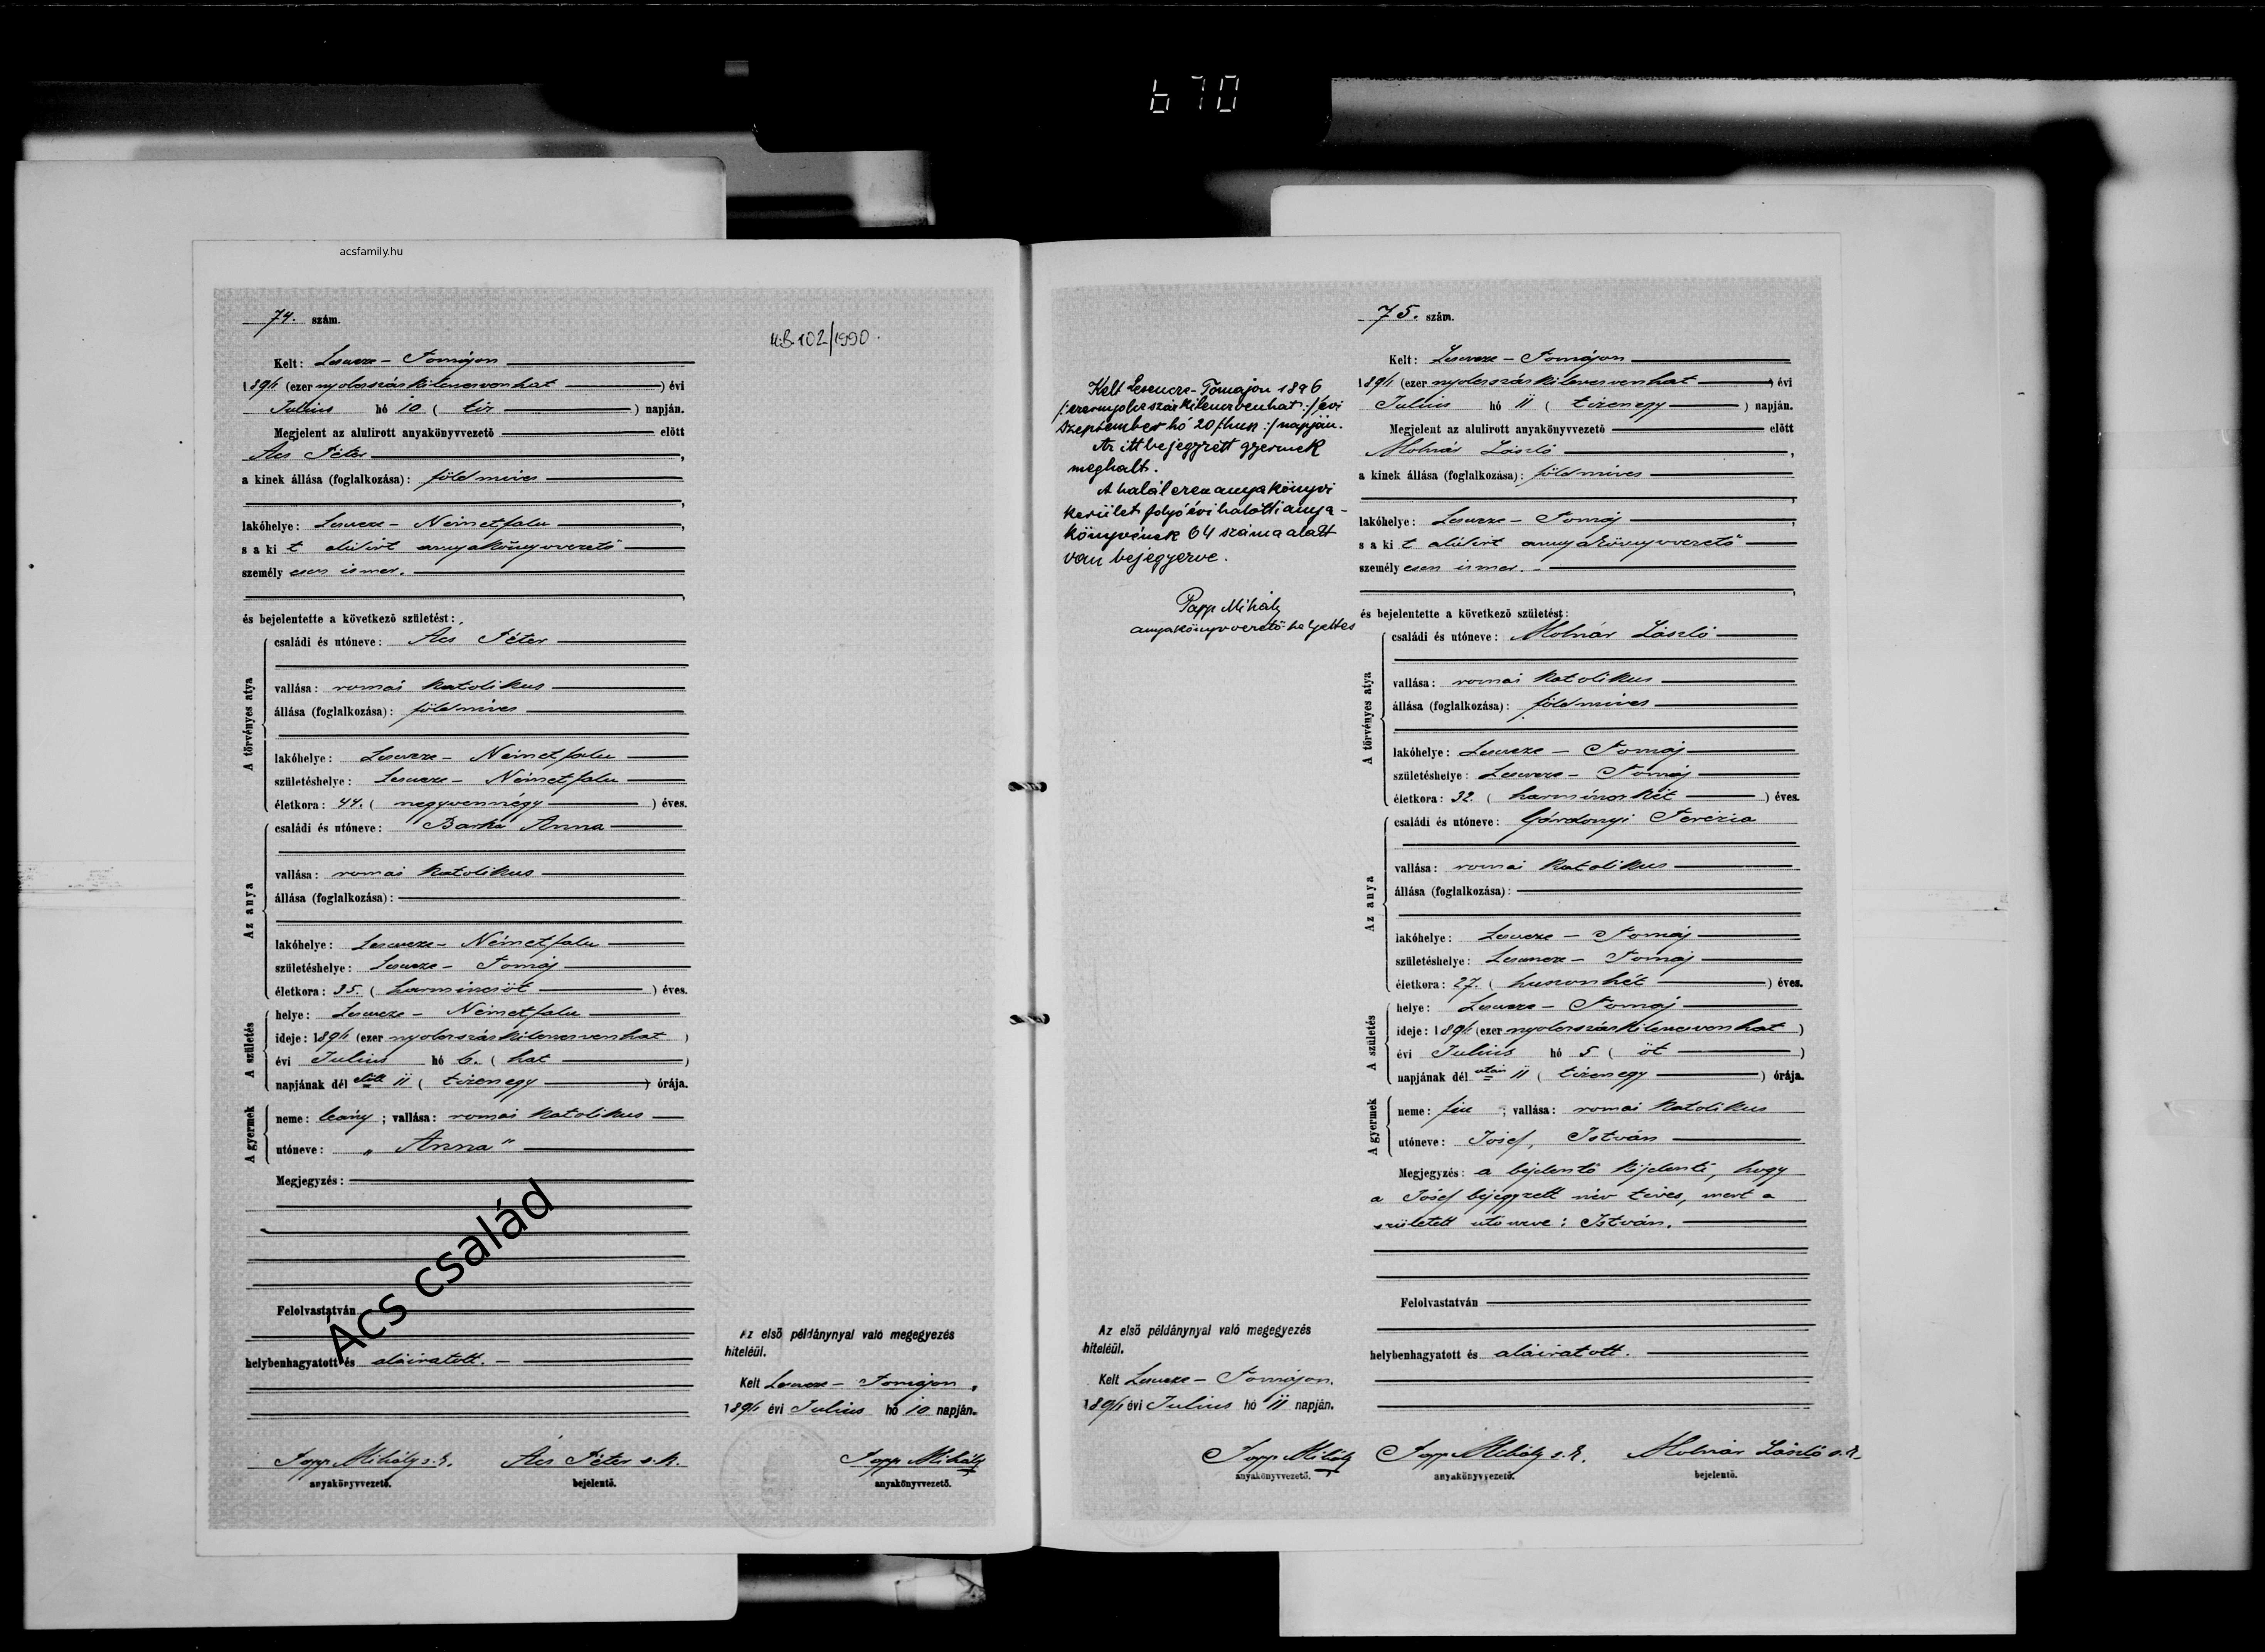 670
acsfamily.hu
74. szám.
H.B. 102/1990.
Kelt: Lesencze - Tomajon
1896 (ezer nyolczszázkilenczvenhat) évi
Julius hó 10 (tíz) napján.
Megjelent az alulirott anyakönyvvezető előtt
Ács Péter,
a kinek állása (foglalkozása): földmíves
,
lakóhelye: Lesencze - Németfalu,
s a ki t alúlirt anyakönyvvezető
személy esen ismer.
,
és bejelentette a következő születést:
A törvényes atya
családi és utóneve: Ács Péter
vallása: romai katolikus
állása (foglalkozása): földmíves
lakóhelye: Lesencze - Németfalu
születéshelye: Lesencze - Németfalu
életkora: 44. (negyvennégy) éves.
Az anya
családi és utóneve: Barka Anna
vallása: romai katolikus
állása (foglalkozása):
lakóhelye: Lesencze - Németfalu
születéshelye: Lesencze - Tomaj
életkora: 35. (harminczöt) éves.
A születés
helye: Lesencze - Németfalu
ideje: 1896 (ezer nyolczszázkilenczvenhat)
évi Julius hó 6. (hat)
napjának dél előtt 11 (tizenegy) órája.
A gyermek
neme: leány; vallása: romai katolikus
utóneve: „Anna"
Megjegyzés:
Ács család
Felolvastatván
helybenhagyatott és aláiratott. -
Az első példánynyal való megegyezés
hiteléül.
Kelt Lesencze - Tomajon,
1896 évi Julius hó 10 napján.
Papp Mihály s. k. Ács Péter s. k. Papp Mihály
anyakönyvvezető. bejelentő. anyakönyvvezető.
75. szám.
Kelt Lesencze - Tomajon 1896
/: ezernyolczszázkilenczvenhat :/ évi
Szeptember hó 20 /: husz :/ napján.
Az itt bejegyzett gyermek
meghalt.
A halál ezen anyakönyvi
kerület folyó évi halotti anya-
könyvének 64 száma alatt
van bejegyezve.
Papp Mihály
anyakönyvvezető-helyettes
Kelt: Lesencze - Tomajon
1896 (ezer nyolczszázkilenczvenhat) évi
Julius hó 11 (tizenegy) napján.
Megjelent az alulirott anyakönyvvezető előtt
Molnár László,
a kinek állása (foglalkozása): földmíves
,
lakóhelye: Lesencze - Tomaj,
s a ki t alúlirt anyakönyvvezető
személy esen ismer. -
,
és bejelentette a következő születést:
A törvényes atya
családi és utóneve: Molnár László
vallása: romai katolikus
állása (foglalkozása): földmíves
lakóhelye: Lesencze - Tomaj
születéshelye: Lesencze - Tomaj
életkora: 32. (harminczkét) éves.
Az anya
családi és utóneve: Gárdonyi Terézia
vallása: romai katolikus
állása (foglalkozása):
lakóhelye: Lesencze - Tomaj
születéshelye: Lesencze - Tomaj
életkora: 27. (huszonhét) éves.
A születés
helye: Lesencze - Tomaj
ideje: 1896 (ezer nyolczszázkilenczvenhat)
évi Julius hó 5 (öt)
napjának dél után 11 (tizenegy) órája.
A gyermek
neme: fiu; vallása: romai katolikus
utóneve: József, István
Megjegyzés: a bejelentő kijelenti, hogy
a József bejegyzett név téves, mert a
született utóneve: István.
Felolvastatván
helybenhagyatott és aláiratott.
Az első példánynyal való megegyezés
hiteléül.
Kelt Lesencze - Tomajon.
1896 évi Julius hó 11 napján.
Papp Mihály Papp Mihály s. k. Molnár László s. k.
anyakönyvvezető. anyakönyvvezető. bejelentő.